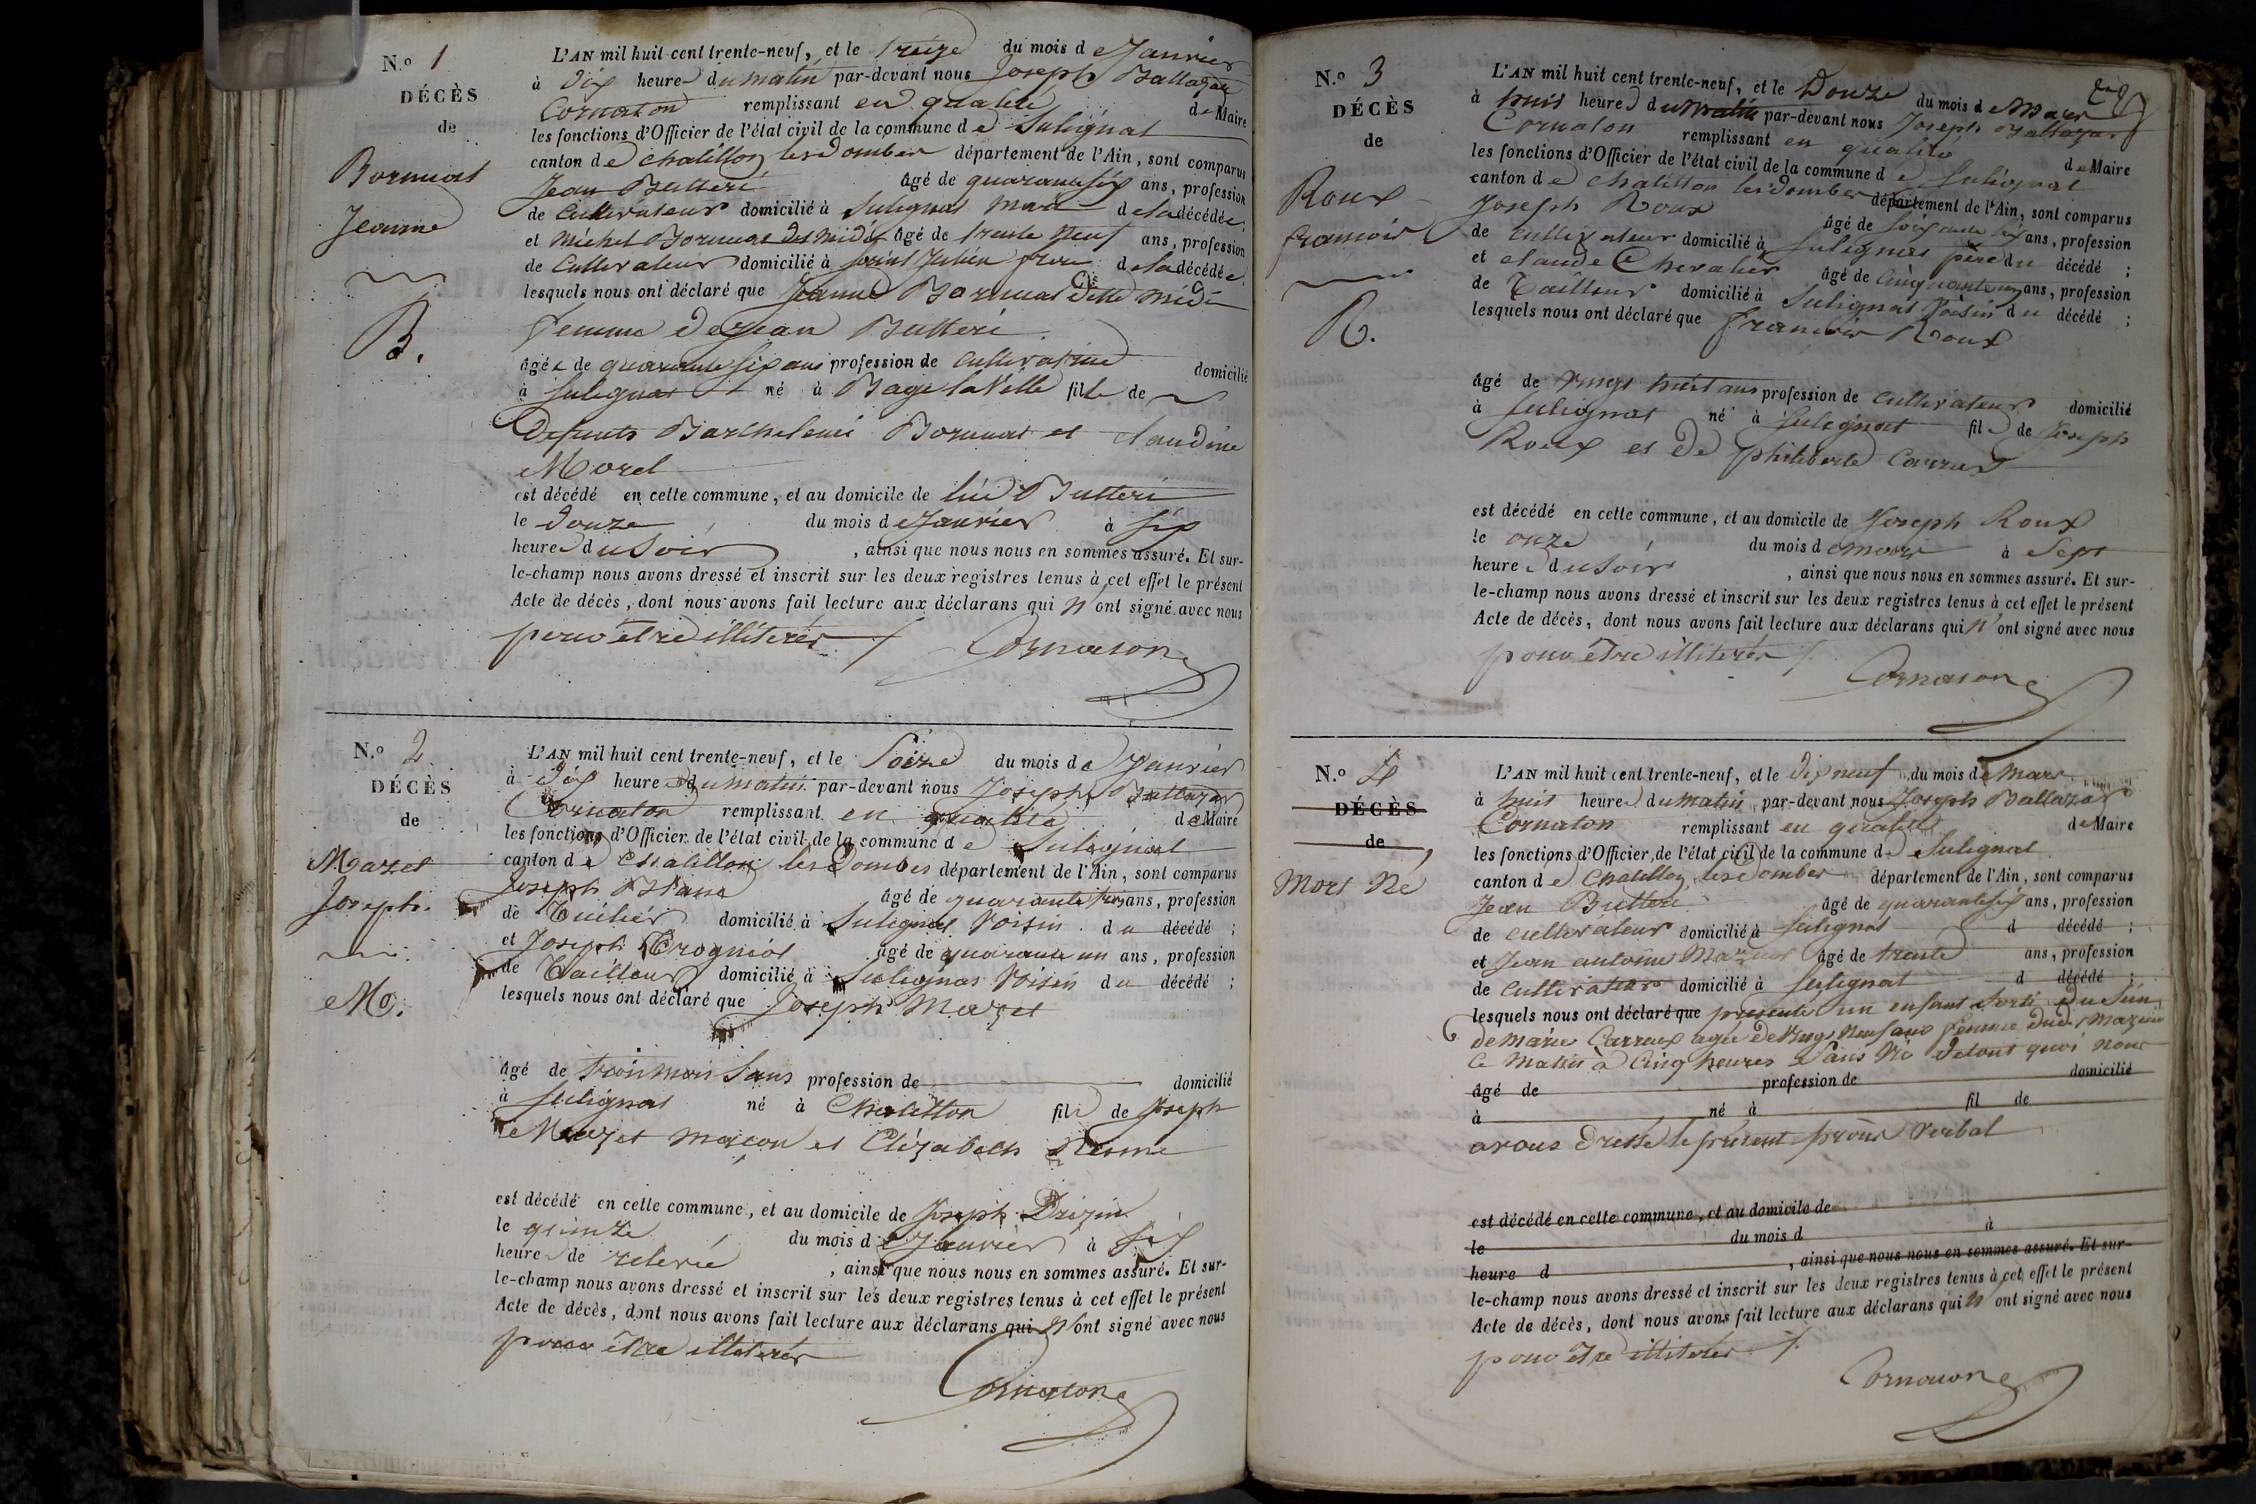 N.º 1
DÉCÈS
de
Bornuat
Jeanne
B.
L'AN mil huit cent trente-neuf, et le treize du mois de Janvier
à dix heures du matin par-devant nous Joseph Baltazar
Cornaton remplissant en qualité de Maire
les fonctions d'Officier de l'état civil de la commune de Sulignat
canton de Chatillon les Dombes département de l'Ain, sont comparus
Jean Butteri âgé de quarante six ans, profession
de Cultivateur domicilié à Sulignat mari de la décédée;
et Michel Bornuat dit midi âgé de trente neuf ans, profession
de Cultivateur domicilié à Saint Julien frère de la décédée
lesquels nous ont déclaré que Jeanne Bornuat dite midi
femme de Jean Butteri
âgée de quarante six ans profession de cultivatrice domicilié
à Sulignat né à Bagé la Ville fille de
Defunts Barthelemi Bornuat et Claudine
Morel
est décédé en cette commune, et au domicile de Butteri
le douze du mois de Janvier à six
heures du Soir, ainsi que nous nous en sommes assuré. Et sur-
le-champ nous avons dressé et inscrit sur les deux registres tenus à cet effet le présent
Acte de décès, dont nous avons fait lecture aux déclarans qui n'ont signé avec nous
pour être illiterés /.
Cornaton
N.º 2
DÉCÈS
de
Mazet
Joseph.
M.
L'AN mil huit cent trente-neuf, et le Seize du mois de Janvier
à dix heures du matin par-devant nous Joseph Baltazar
Cornaton remplissant en qualité de Maire
les fonctions d'Officier de l'état civil de la commune de Sulignat
canton de Chatillon les Dombes département de l'Ain, sont comparus
Joseph Blanc âgé de quarante trois ans, profession
de Tuilier domicilié à Sulignat Voisin du décédé;
et Joseph Crogniot âgé de quarante un ans, profession
de Tailleur domicilié à Sulignat Voisin du décédé;
lesquels nous ont déclaré que Joseph Mazet
âgé de trois mois Sans profession de domicilié
à Sulignat né à Chatillon fils de Joseph
Mazet macon et Elizabeth
est décédé en cette commune, et au domicile de Joseph Drizin
le quinze du mois de Janvier à six
heures de relevée, ainsi que nous nous en sommes assuré. Et sur-
le-champ nous avons dressé et inscrit sur les deux registres tenus à cet effet le présent
Acte de décès, dont nous avons fait lecture aux déclarans qui n'ont signé avec nous
pour être illiterés
Cornaton
N.º 3
DÉCÈS
de
Roux
francois
R.
L'AN mil huit cent trente-neuf, et le Douze du mois de Mars
à huit heures du matin par-devant nous Joseph Baltazar
Cornaton remplissant en qualité de Maire
les fonctions d'Officier de l'état civil de la commune de Sulignat
canton de Chatillon les Dombes département de l'Ain, sont comparus
Joseph Roux âgé de Soixante six ans, profession
de cultivateur domicilié à Sulignat père du décédé;
et Claude Chevalier âgé de Cinquante un ans, profession
de Tailleur domicilié à Sulignat Voisin du décédé;
lesquels nous ont déclaré que francois Roux
âgé de Vingt huit ans profession de cultivateur domicilié
à Sulignat né à Sulignat fils de Joseph
Roux et de philiberte Carrier
est décédé en cette commune, et au domicile de Joseph Roux
le onze du mois de mars à Sept
heures du Soir, ainsi que nous nous en sommes assuré. Et sur-
le-champ nous avons dressé et inscrit sur les deux registres tenus à cet effet le présent
Acte de décès, dont nous avons fait lecture aux déclarans qui n'ont signé avec nous
pour être illiterés /.
Cornaton
N.º 4
DÉCÈS
de
Mort Né
L'AN mil huit cent trente-neuf, et le dix neuf du mois de Mars
à huit heures du matin par-devant nous Joseph Baltazar
Cornaton remplissant en qualité de Maire
les fonctions d'Officier de l'état civil de la commune de Sulignat
canton de Chatillon les Dombes département de l'Ain, sont comparus
Jean Butteri âgé de quarante six ans, profession
de cultivateur domicilié à Sulignat d décédé;
et Jean antoine Mazuir âgé de trente ans, profession
de Cultivateur domicilié à Sulignat d décédé;
lesquels nous ont déclaré que presenté un enfant Sorti du Sein
de marie Carraux agée de Vingt Neuf ans femme dudit Mazuir
Ce Matin à Cinq heures Sans Vie de tout quoi nous
âgé de profession de domicilié
à né à fil de
avons dressé le présent procès Verbal
est décédé en cette commune, et au domicile de
le du mois d à
heure d , ainsi que nous nous en sommes assuré. Et sur-
le-champ nous avons dressé et inscrit sur les deux registres tenus à cet effet le présent
Acte de décès, dont nous avons fait lecture aux déclarans qui n'ont signé avec nous
pour être illiterés /.
Cornaton